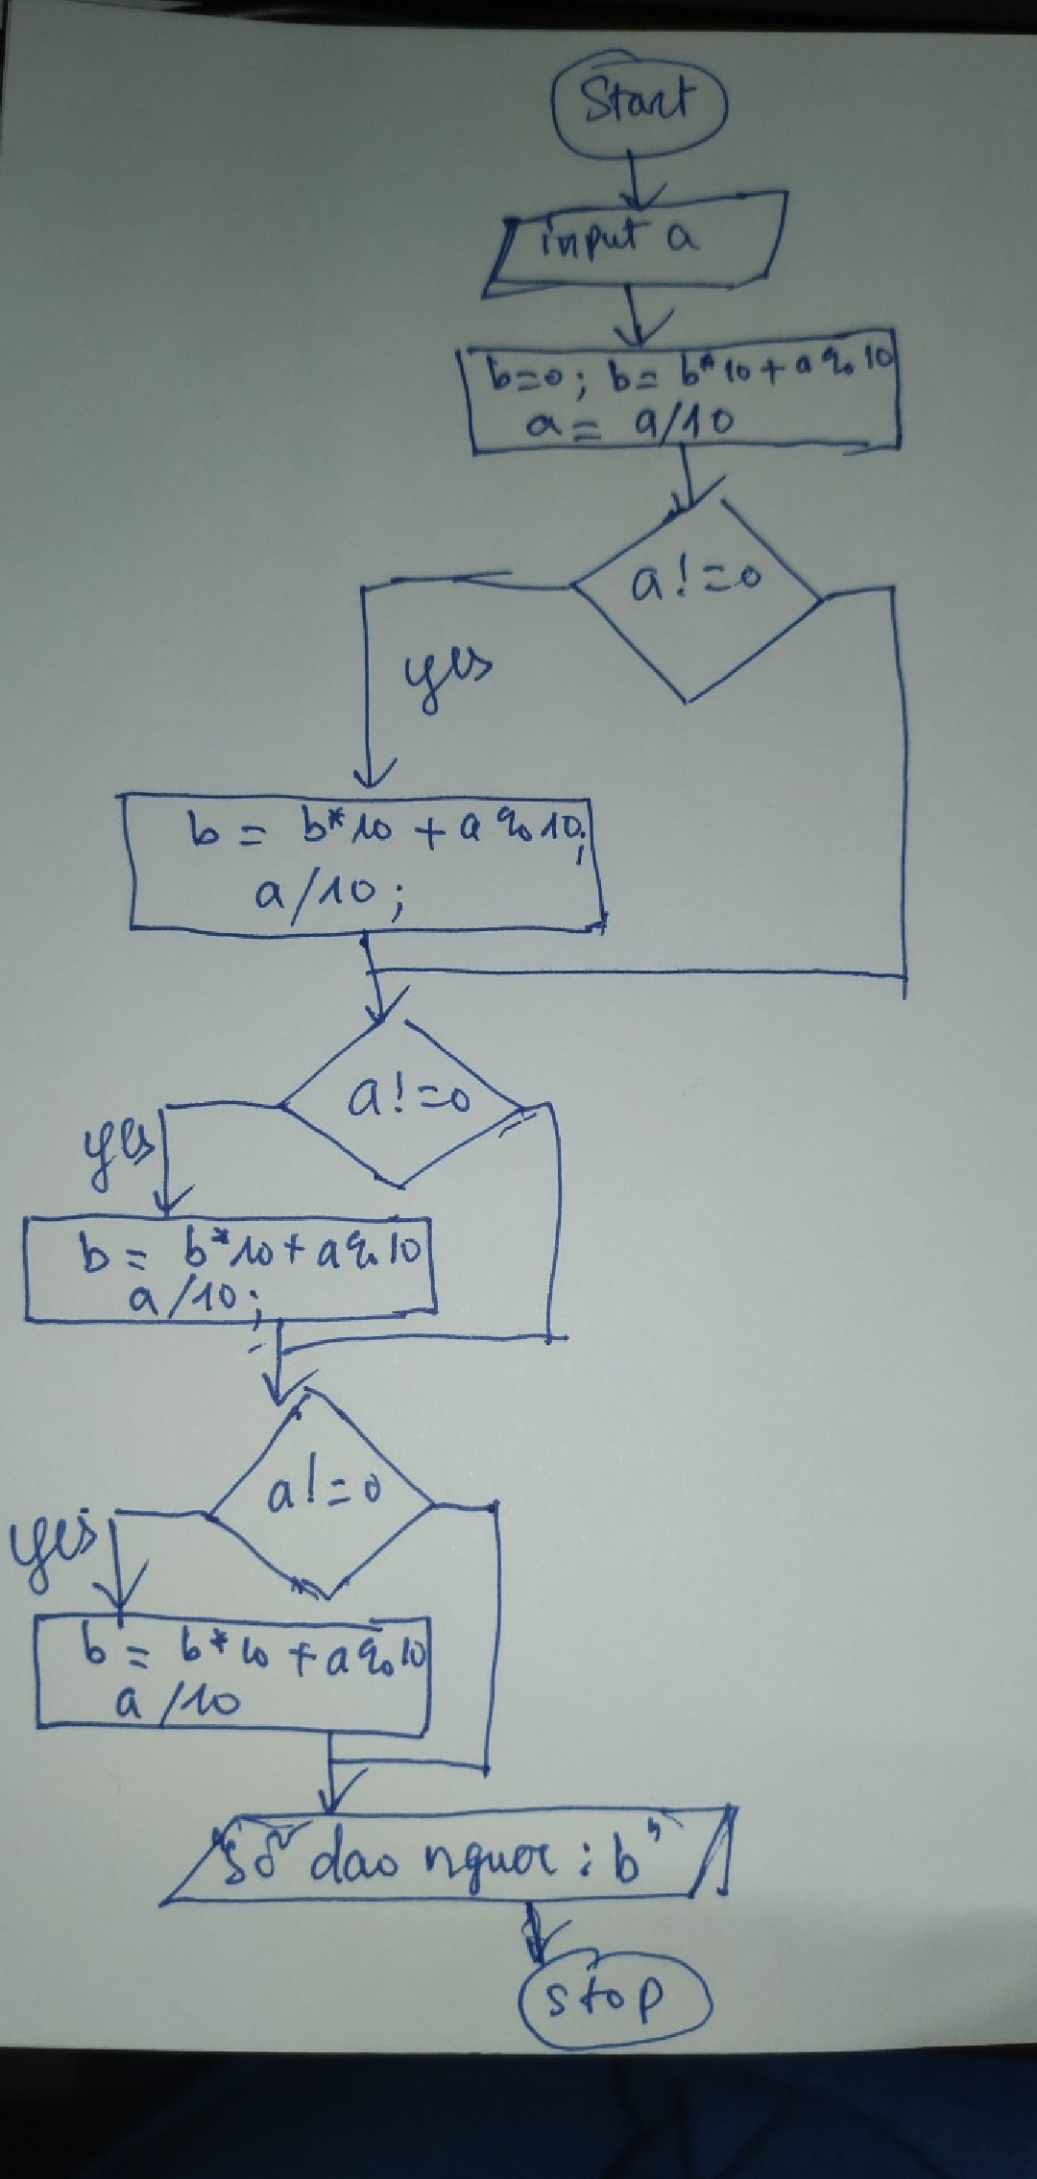 Start
input a
b=0; b= b*10+a%10
a= a/10
a!=0
yes
b= b*10 + a%10;
a/10;
a!=0
yes
b= b*10+a%10
a/10;
a!=0
yes
b= b*10 +a%10
a/10
"Số dao nguoc: b"
stop